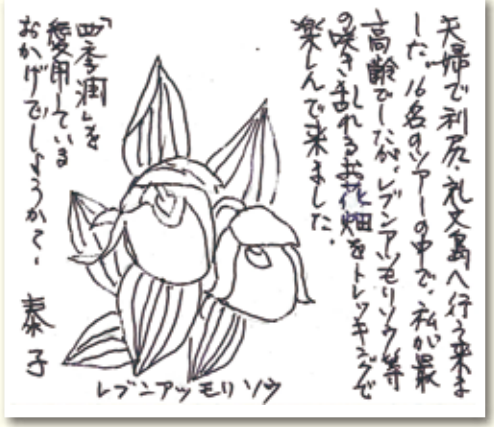 夫婦で利尻・礼文島へ行って来ま
した。16名のツアーの中で、私が最
高齢でしたが、レブンアツモリソウ等
の咲き乱れるお花畑をトレッキングで
楽しんで来ました。
「四季潤」を
愛用している
おかげでしょうか?〜
泰子
レブンアツモリソウ